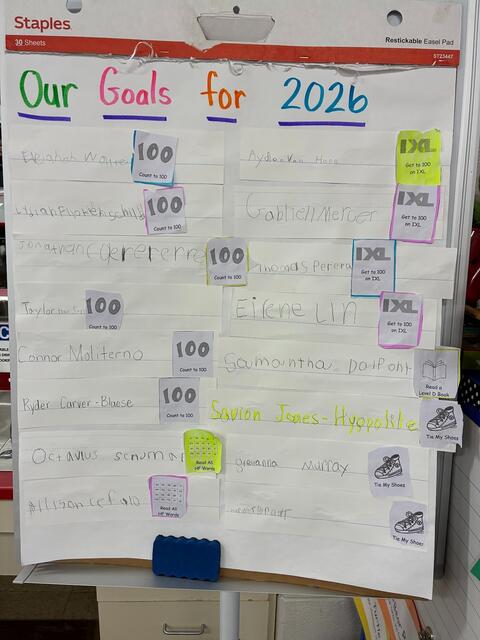 Staples
30 Sheets
Restickable Easel Pad
ST23447
Our Goals for 2026
100
Count to 100
100
Count to 100
Jonathan
100
Count to 100
Taylor
100
Count to 100
Connor Moliterno
100
Count to 100
Ryder Carver-Blaese
100
Count to 100
Octavius
Read All
HF Words
Allison
Read All
HF Words
IXL
Get to 100
on IXL
Gabriell Mercer
IXL
Get to 100
on IXL
Thomas Perera
IXL
Get to 100
on IXL
Eirene Lin
IXL
Get to 100
on IXL
Samantha DaPont
Read a
Level D Book
Savion Jones-Hyppolite
Tie My Shoes
giovanna Murray
Tie My Shoes
Tie My Shoes